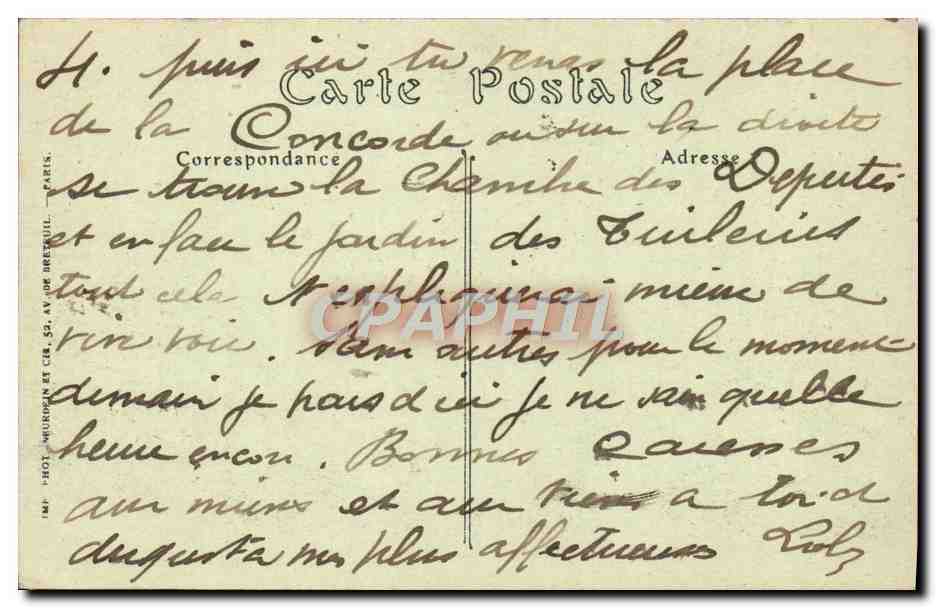 4. puis ici tu verras la place
Carte Postale
de la Concorde ou sur la droite
Correspondance
Adresse
se trouve la Chambre des Deputés
et en face le jardin des Tuileries
tout cela t'expliquerai mieux de
vive voix. Sans autres pour le moment
demain je pars d'ici je ne sais quelle
heure encore. Bonnes caresses
aux miens et aux tiens a toi d
mes plus affectueuses
IMP. PHOT. NEURDEIN ET CIE. 52, AV. DE BRETEUIL. — PARIS.
CPAPHIL